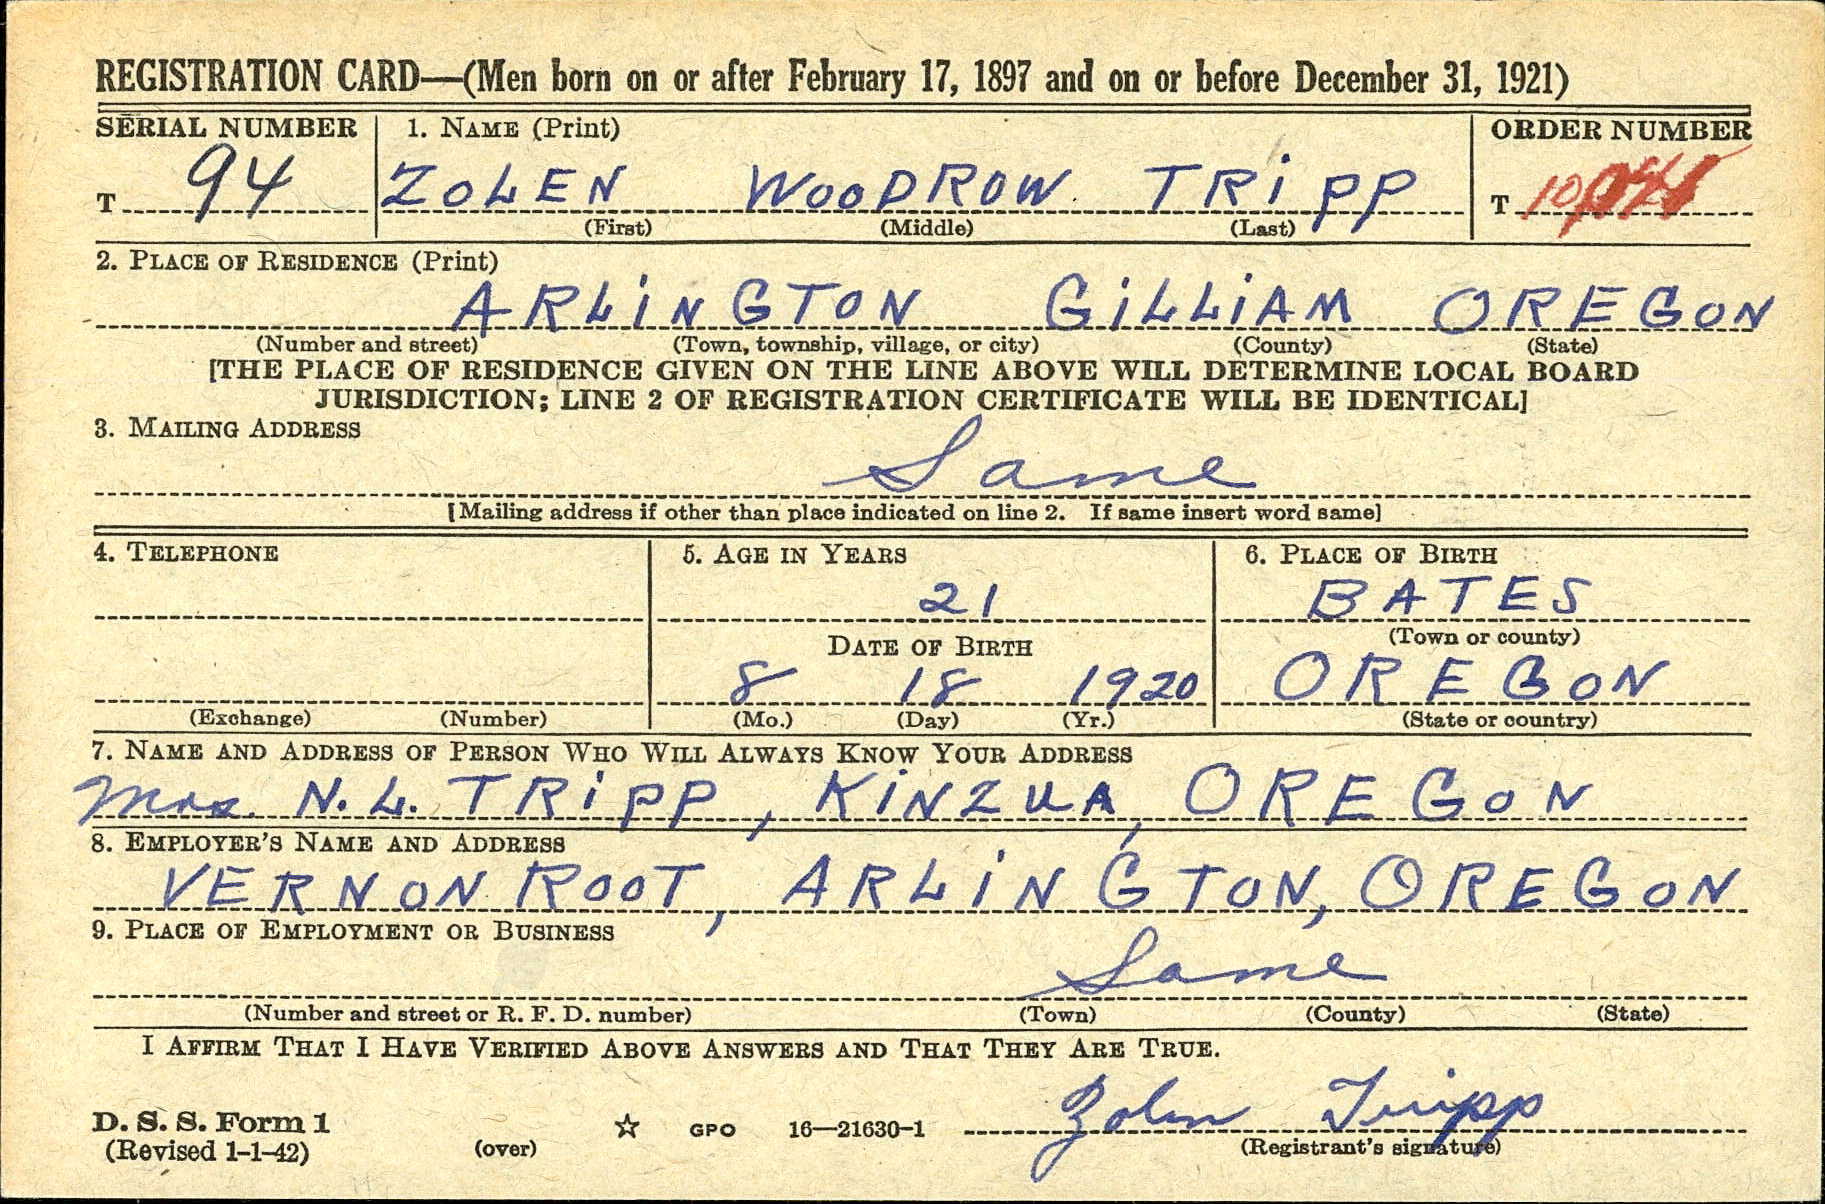 REGISTRATION CARD—(Men born on or after February 17, 1897 and on or before December 31, 1921)
SERIAL NUMBER 1. NAME (Print) ORDER NUMBER
T 94 ZOLEN WOODROW TRiPP T
(First) (Middle) (Last)
2. PLACE OF RESIDENCE (Print)
ARLiNGTON GiLLiAM OREGON
(Number and street) (Town, township, village, or city) (County) (State)
[THE PLACE OF RESIDENCE GIVEN ON THE LINE ABOVE WILL DETERMINE LOCAL BOARD
JURISDICTION; LINE 2 OF REGISTRATION CERTIFICATE WILL BE IDENTICAL]
3. MAILING ADDRESS
Same
[Mailing address if other than place indicated on line 2. If same insert word same]
4. TELEPHONE 5. AGE IN YEARS 6. PLACE OF BIRTH
21 BATES
DATE OF BIRTH (Town or county)
8 18 1920 OREGON
(Exchange) (Number) (Mo.) (Day) (Yr.) (State or country)
7. NAME AND ADDRESS OF PERSON WHO WILL ALWAYS KNOW YOUR ADDRESS
Mrs. N. L. TRiPP, KiNZUA, OREGON
8. EMPLOYER'S NAME AND ADDRESS
VERNON ROOT, ARLiNGTON, OREGON
9. PLACE OF EMPLOYMENT OR BUSINESS
Same
(Number and street or R. F. D. number) (Town) (County) (State)
I AFFIRM THAT I HAVE VERIFIED ABOVE ANSWERS AND THAT THEY ARE TRUE.
Zolen Tripp
D. S. S. Form 1
(Revised 1-1-42) (over) ☆ GPO 16—21630-1 (Registrant's signature)